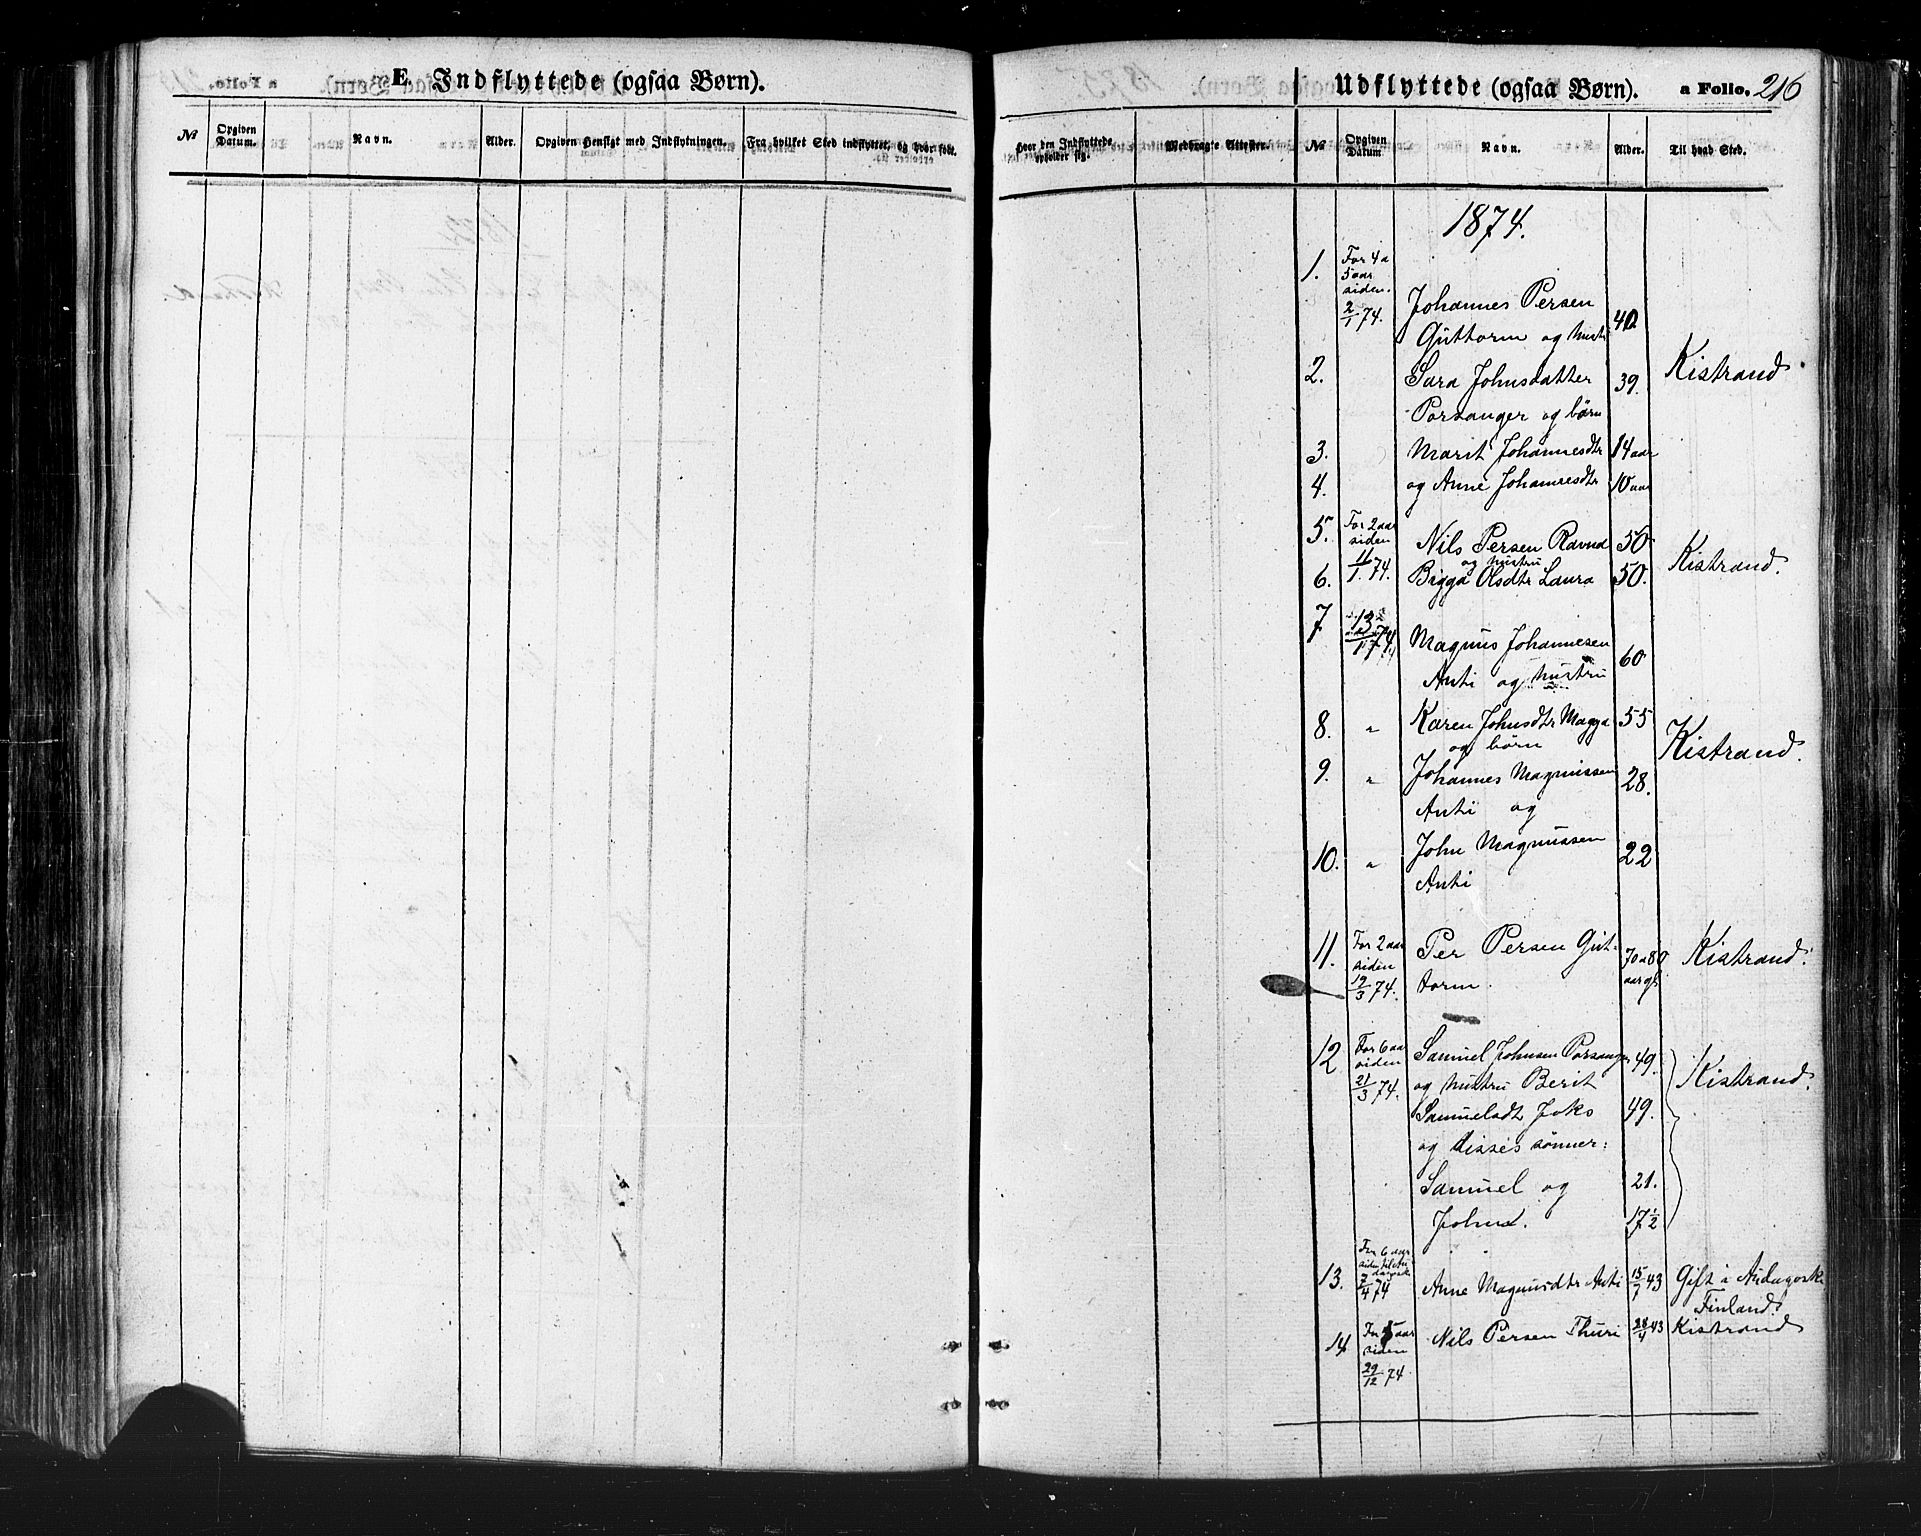 E. Indflyttede (ogsaa Børn).
№
Opgiven Datum.
Navn.
Alder.
Opgiven Hensigt med Indflytningen.
Fra hvilket Sted indflyttet, og hvor født.
Udflyttede (ogsaa Børn).
a Folio. 216
Hvor den Indflyttede opholder sig.
Medbragte Attester.
№
Opgiven Datum
Navn.
Alder.
Til hvad Sted.
1874.
1. For 4 a
5 aar
siden.
2/1 74. Johannes Persen
Guttorm og hustr 40
2. Sara Johnsdatter 39. Kistrand
Porsanger og børn
3. Marit Johannesdtr 14 aar
4. og Anne Johannesdtr 10 aar
5. For 2 aar
siden Nils Persen Ravna 50 Kistrand.
11/1 74. og hustru
6. Bigga Olsdtr Laura 50.
7 13/1 74 Magnus Johannesen
Anti og hustru 60
8. " Karen Johnsdtr Magga 55
og børn Kistrand.
9. " Johannes Magnussen 28.
Anti og
10. " John Magnussen 22
Anti
11. For 2 aar Per Persen Gut- 70 a 80 Kistrand.
siden
19/3 74. torm. aar gl
12 For 6 aar Samuel Johnsen Porsanger 49. Kistrand.
siden
21/3 74. og hustru Berit
Samuelsdt Joks 49.
og disses sønner:
Samuel og 21.
John. 17 1/2
13. For 6 aar
siden til
7/4 74 Anne Magnusdtr Anti 15/1 43 Gift i Audagoski
Finland.
14 For 5 aar Nils Persen Thuri 28/4 43 Kistrand
siden
29/12 74